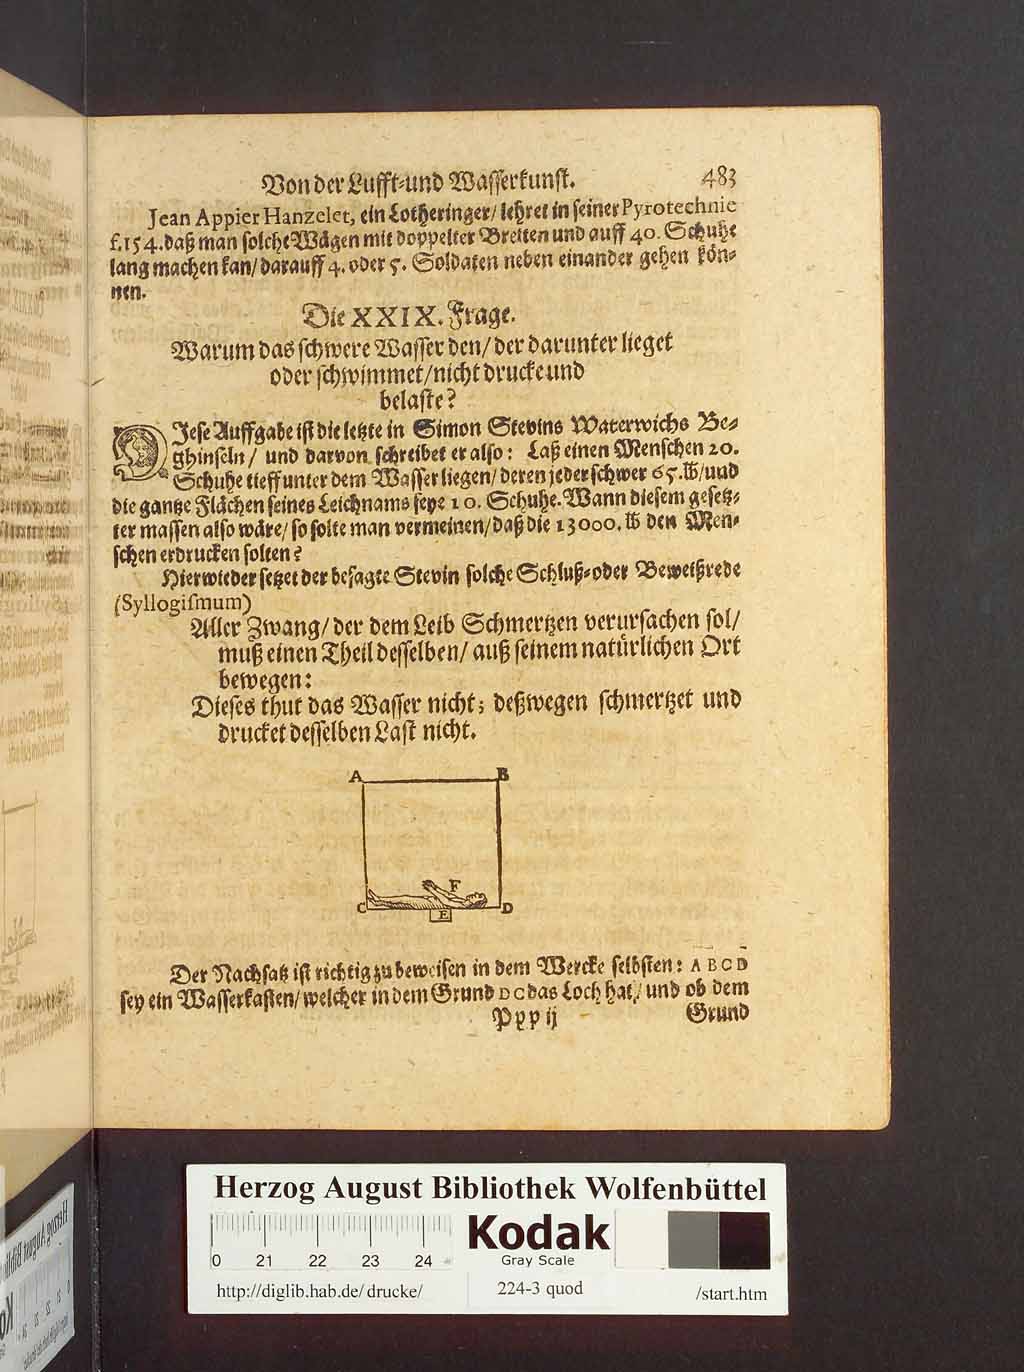 Von der Lufft-und Wasserkunst. 483
Jean Appier Hanzelet, ein Lotheringer/ lehret in seiner Pyrotechnie
f.154. daß man solche Wägen mit doppelter Bretten und auff 40. Schuhe
lang machen kan/ darauff 4. oder 5. Soldaten neben einander gehen kön-
nen.
Die XXIX. Frage.
Warum das schwere Wasser den/ der darunter lieget
oder schwimmet/ nicht drucke und
belaste?
DJese Auffgabe ist die letzte in Simon Stevins Waterwichs Be-
ghinseln/ und darvon schreibet er also: Laß einen Menschen 20.
Schuhe tieff unter dem Wasser liegen/ deren jeder schwer 65. ℔/ und
die gantze Flächen seines Leichnams seye 10. Schuhe. Wann diesem gesetz-
ter massen also wäre/ so solte man vermeinen/ daß die 13000. ℔ den Men-
schen erdrucken solten?
Hierwieder setzet der besagte Stevin solche Schluß-oder Beweißrede
(Syllogismum)
Aller Zwang/ der dem Leib Schmertzen verursachen sol/
muß einen Theil desselben/ auß seinem natürlichen Ort
bewegen:
Dieses thut das Wasser nicht; deßwegen schmertzet und
drucket desselben Last nicht.
A B
F
C E D
Der Nachsatz ist richtig zu beweisen in dem Wercke selbsten: A B C D
sey ein Wasserkasten/ welcher in dem Grund D C das Loch hat/ und ob dem
Ppp ij Grund
Herzog August Bibliothek Wolfenbüttel
0 21 22 23 24
Kodak
Gray Scale
http://diglib.hab.de/drucke/ 224-3 quod /start.htm